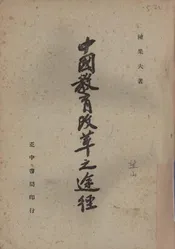 陳果夫著
中國教育改革之途徑
正中書局印行